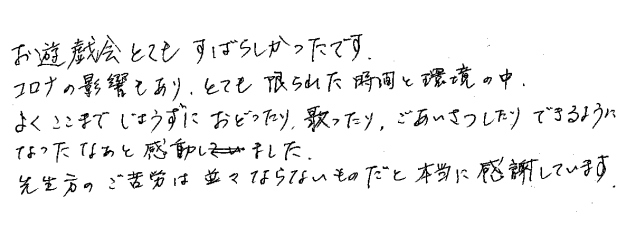 お遊戯会とても すばらしかったです.
コロナの影響もあり、とても 限られた 時間と環境の中.
よく ここまで じょうずに おどったり、歌ったり、ごあいさつしたり できるように
なった なぁと 感動しました.
先生方の ご苦労は 並々ならないものだと 本当に 感謝しています.